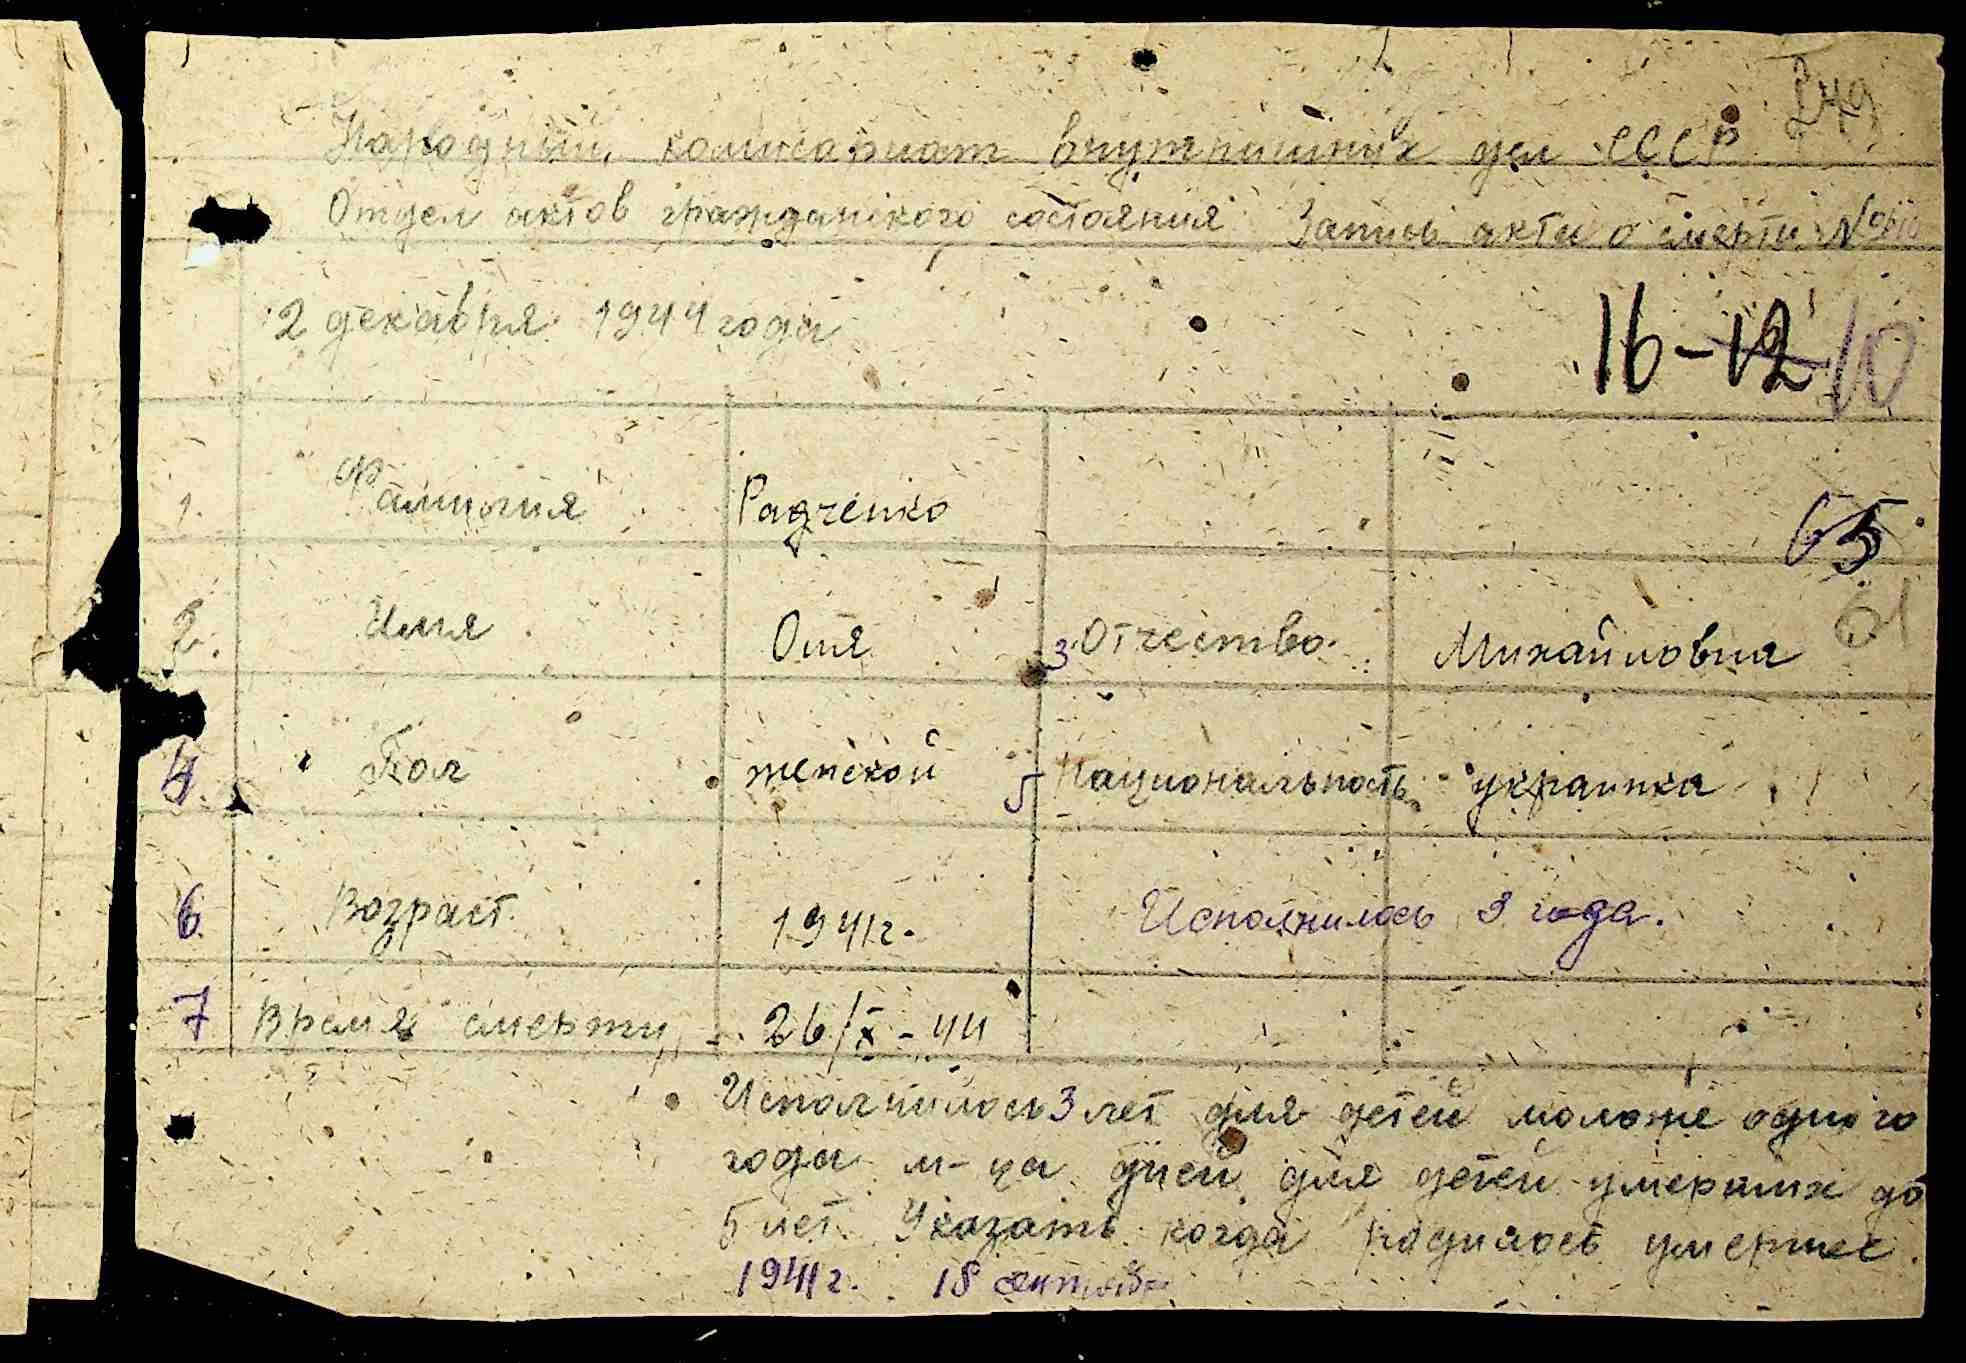 249
Народный комисариат внутриших дел СССР
Отдел актов гражданского состояния Запись акта о смерти №
2 декабря 1944 года
16-12 10
1. Фамилия Радченко
65
61
2. Имя Оля 3 Отчество Михайловна
4. Пол женской 5 Национальность украинка
6. Возраст 1941г. Исполнилось 3 года.
7 Время смерти 26/X-44
Исполнилось 3 лет для детей моложе одного
года м-ца дней для детей умерших до
5 лет. Указать когда родилось умершее.
1941г. 18 сентября